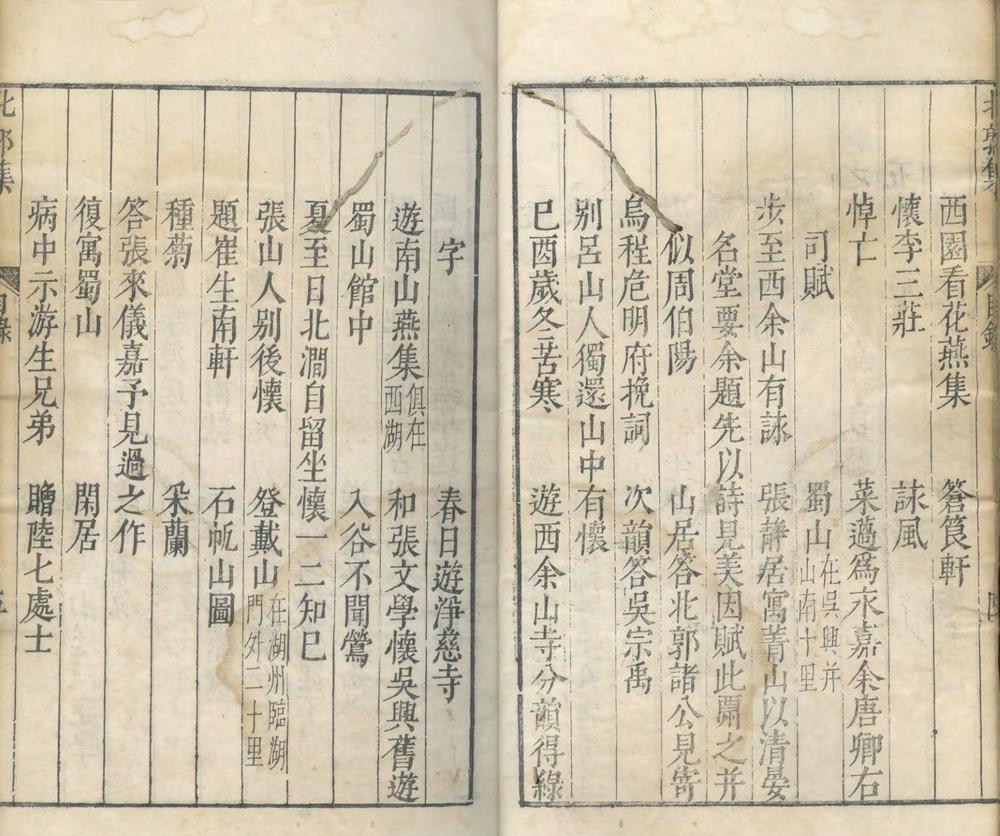 西園看花燕集　蒼筤軒
懷李三莊　詠風
悼亡　菜薖為永嘉余唐卿右
司賦　蜀山在吳興并山南十里
步至西余山有詠　張靜居寓菁山以清晏
名堂要余題先以詩見美因賦此酬之并
似周伯陽　山居答北郭諸公見寄
烏程危明府挽詞　次韻答吳宗禹
别呂山人獨還山中有懷
巳酉歲冬苦寒　遊西余山寺分韻得綠
字　春日遊淨慈寺
遊南山燕集俱在西湖　和張文學懷吳興舊遊
蜀山館中　入谷不聞鶯
夏至日北澗自留坐懷一二知巳
張山人别後懷　登戴山在湖州臨湖門外二十里
題崔生南軒　石帆山圖
種菊　采蘭
答張來儀嘉予見過之作
復寓蜀山　閑居
病中示游生兄弟　贈陸七處士
北郭集　目錄